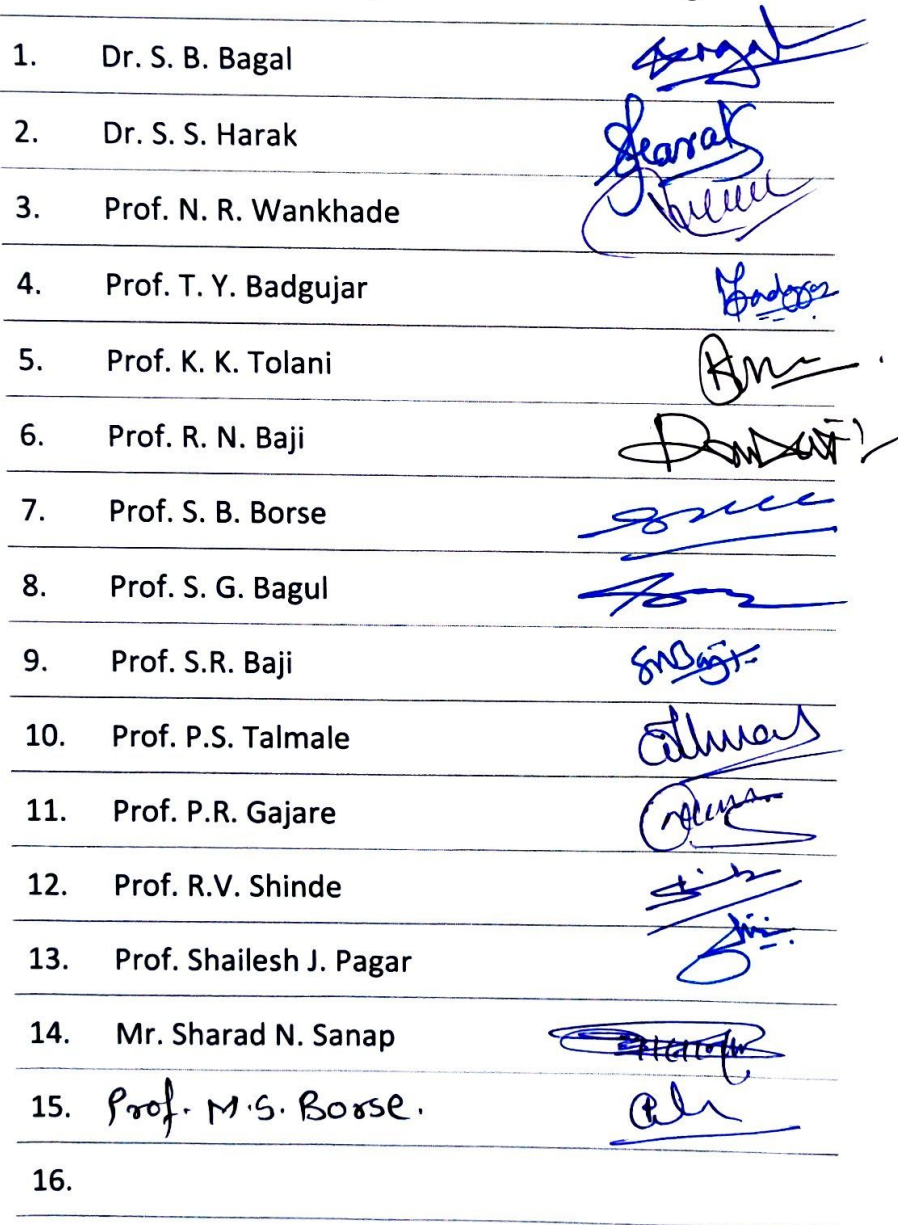 1. Dr. S. B. Bagal
2. Dr. S. S. Harak
3. Prof. N. R. Wankhade
4. Prof. T. Y. Badgujar
5. Prof. K. K. Tolani
6. Prof. R. N. Baji
7. Prof. S. B. Borse
8. Prof. S. G. Bagul
9. Prof. S.R. Baji
10. Prof. P.S. Talmale
11. Prof. P.R. Gajare
12. Prof. R.V. Shinde
13. Prof. Shailesh J. Pagar
14. Mr. Sharad N. Sanap
15. Prof. M.S. Borse.
16.